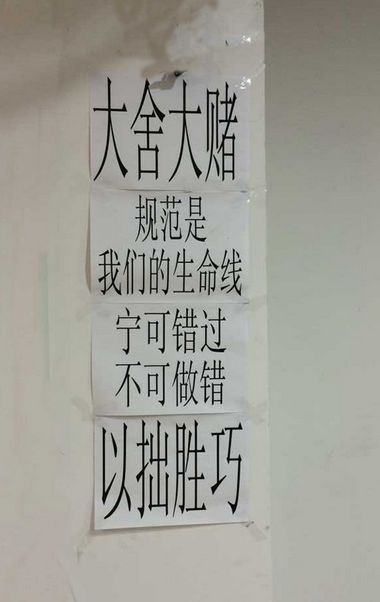 大舍大赌
规范是
我们的生命线
宁可错过
不可做错
以拙胜巧